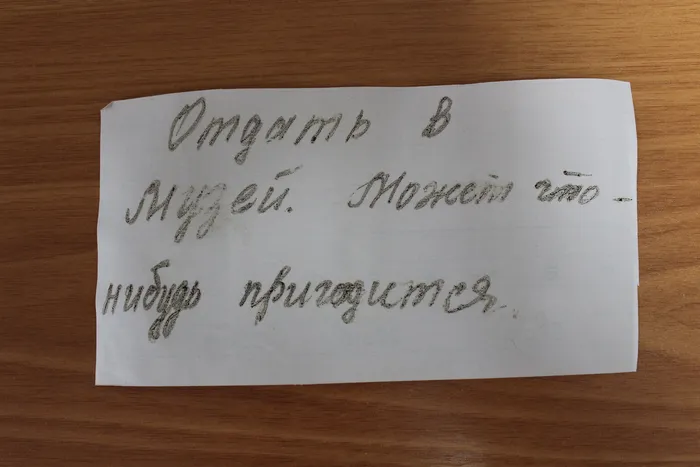 Отдать в
Музей. Может что-
нибудь пригодится.